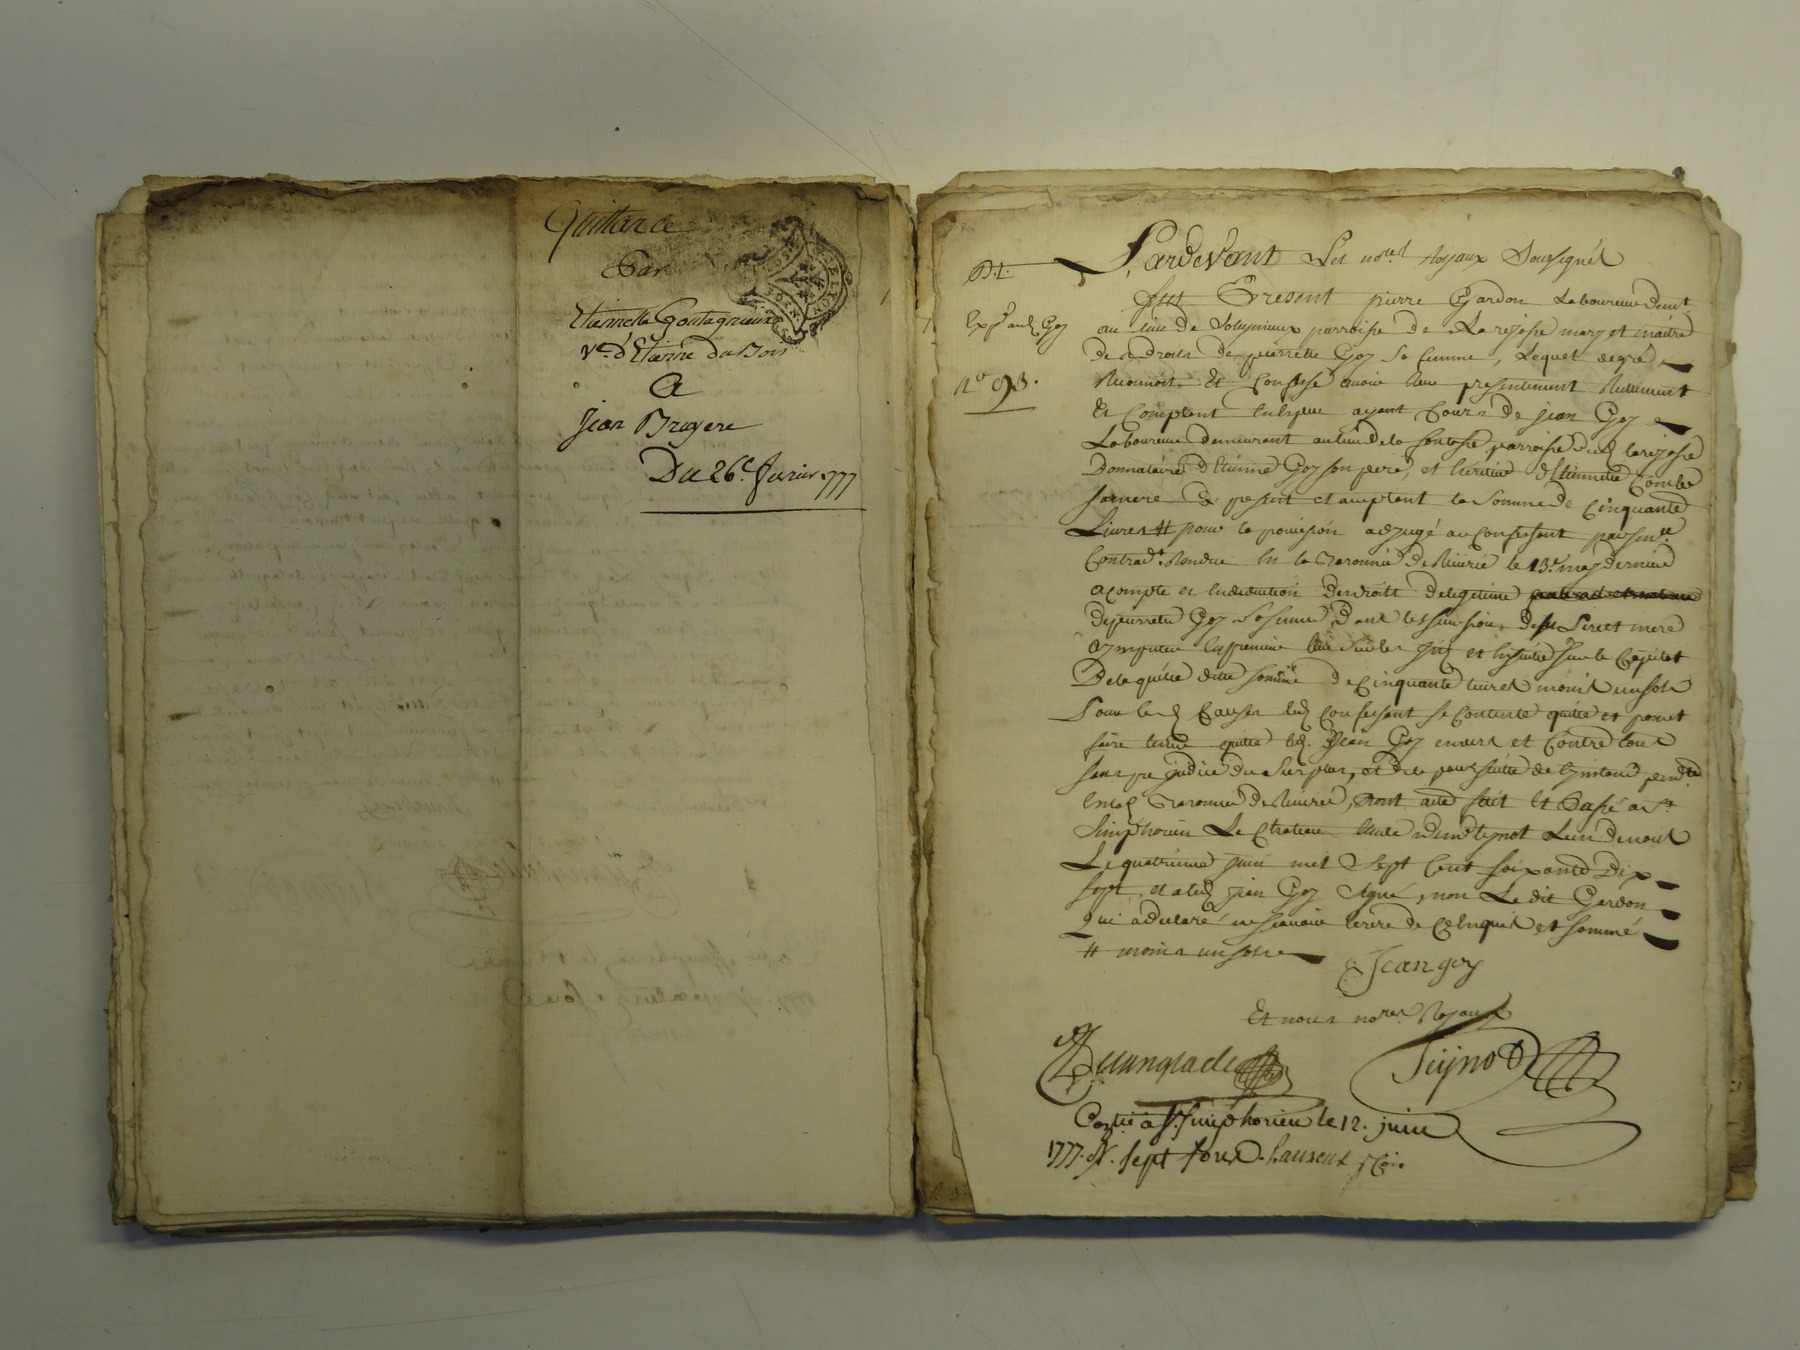 Quittance
Par
Etiennette Gontagneux
Ve. d'Etienne du Bois
A
Jean Brugere
Du 26e. fevrier 1777
Pardevant Les nores. Royaux Soussignés
D.t.
fut Present pierre Gardon Laboureur demt.
Exp. aud Goy
au lieu de Soleymieux parroisse de Larejasse mary et maitre
des droits de pierrette Goy sa femme, Lequel de gré
n.o 93.
Reconnoit Et Confesse avoir Reçu presentement Reellement
Et Comptant En Espece ayant Cours de jean Goy
Laboureur demeurant au lieu de la parroisse dud larejasse
Donnataire d'Etienne Goy son pere, et heritier d'Etiennette Combe
sa mere et comptant la Somme de Cinquante
Livres # pour la provision adjugé au Confessant par Snce.
Contradt. Rendue En la Baronnie de Riverie le 13e. may dernier
acompte et En deduction des droits de legitime
de pierrette Goy sa femme, dans les successions de ses Pere et mere
a imputer En premier lieu sur les et Ensuitte sur le Capital
De laquelle ditte somme de Cinquante livres moins un sols
Pour led Causes led Confessant se Contente quitte et promet
faire tenir quitte led. Jean Goy envers et Contre tous
sans prejudice du Surplus, et de la poursuitte de l'instance pendte
En lad Baronnie de Riverie, Dont acte fait Et Passé a St
Simphorien Le Chateau Etude de me teynot L'un de nous
Le quatrieme juin mil Sept Cent soixante Dix
sept, et a led jean Goy Signé, non Le dit Gardon
Qui a declaré ne scavoir Ecrire de Ce Enquis et sommé
# moins un sols
Jean goy
Et nous nores. Royaux
Teynot
Contlé à St. Simphorien le 12. juin
1777. R. sept sous